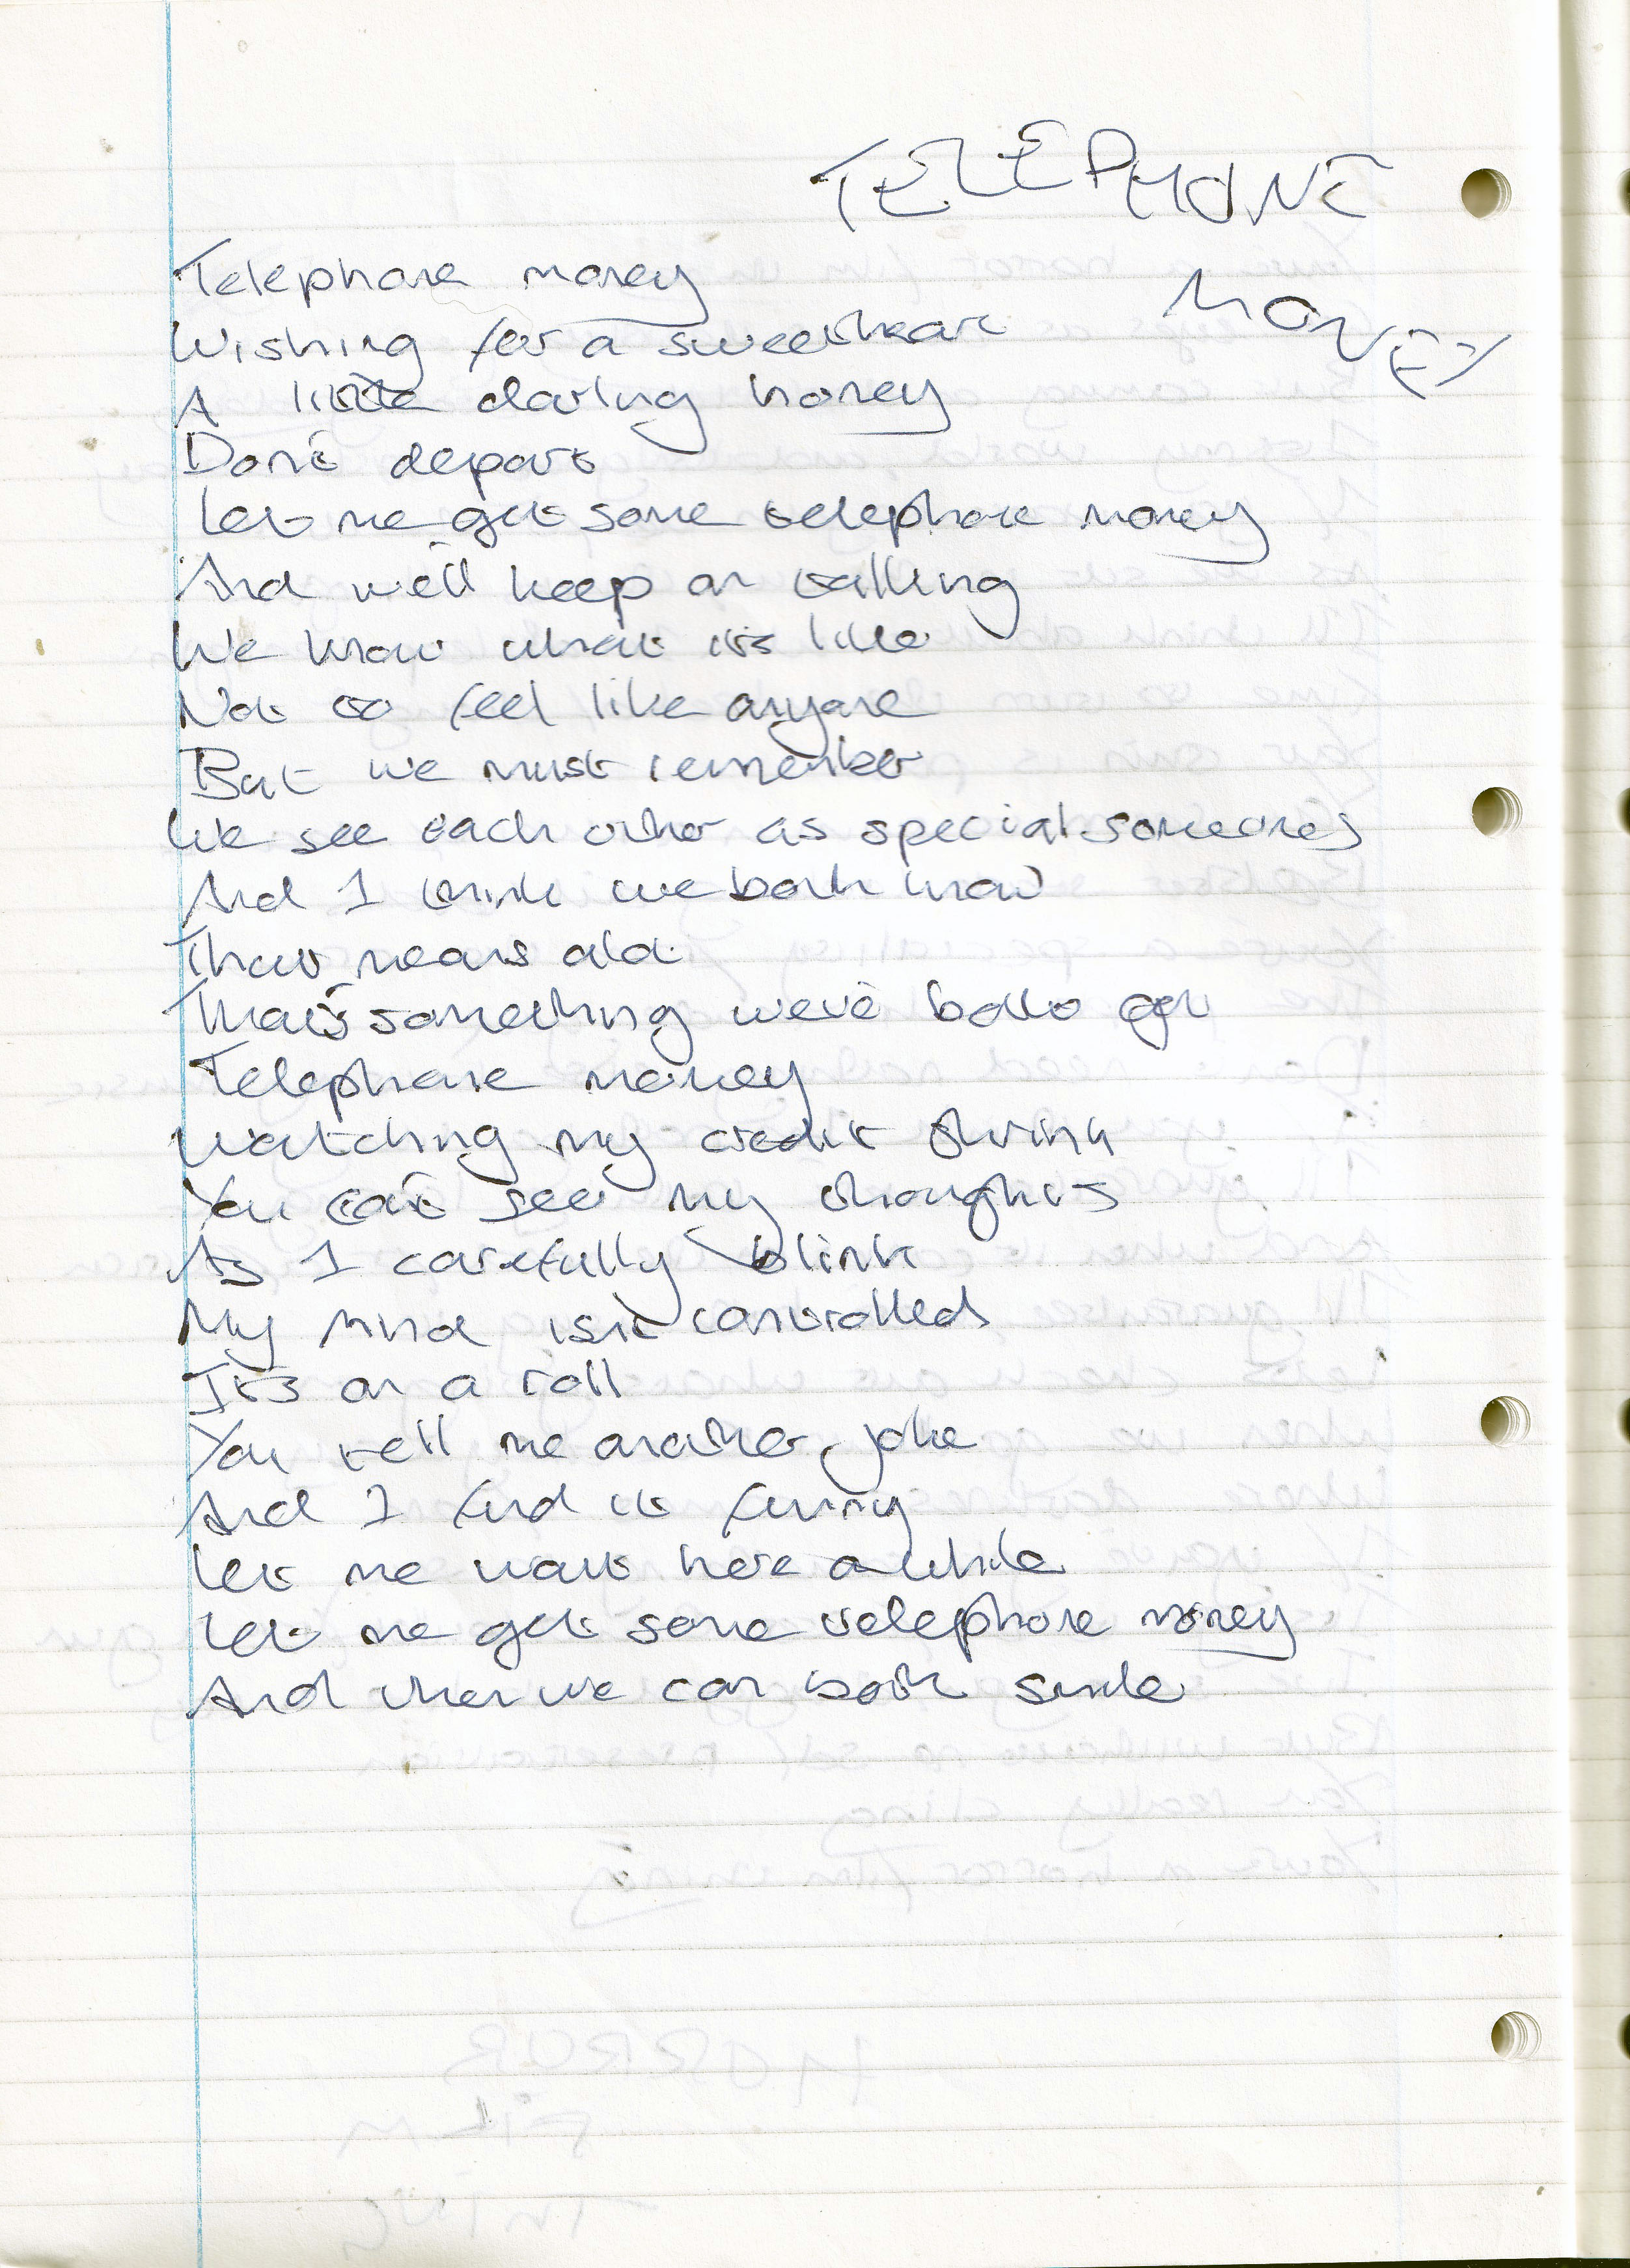 TELEPHONE
MONEY
Telephone money
Wishing for a sweetheart
A little darling honey
Don't depart
Let me get some telephone money
And we'll keep on talking
We know what it's like
Not to feel like anyone
But we must remember
We see each other as special someones
And I think we both know
That means alot
That's something we've both got
Telephone money
Watching my credit shrink
You can't see my thoughts
As I carefully blink
My mind isn't controlled
It's on a roll
You tell me another joke
And I find it funny
Let me wait here awhile
Let me get some telephone money
And then we can both smile